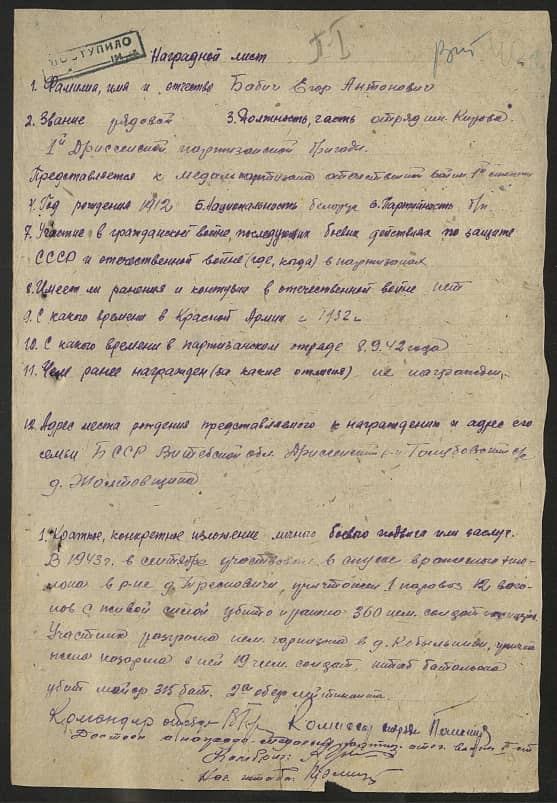 ПОСТУПИЛО
Наградной лист
1. Фамилия, имя и отчество Бабич Егор Антонович
2. Звание рядовой 3. Должность, часть отряд им. Кирова
1ой Дриссенской партизанской бригады.
Представляется к медали партизана отечественной войны 1ой степени
4. Год рождения 1912 5. Национальность беларус 6. Партийность б/п
7. Участие в гражданской войне, последующих боевых действиях по защите
СССР и отечественной войне (где, когда) в партизанах
8. Имеет ли ранения и контузии в отечественной войне нет
9. С какого времени в Красной Армии с 1932 г
10. С какого времени в партизанском отряде 8.9.42 года
11. Чем ранее награжден (за какие отличия) не награжден
12. Адрес места рождения представляемого к награждению и адрес его
семьи БССР Витебской обл. Дриссенский р-н
д. Жолтовщина
1. Краткое, конкретное изложение личного боевого подвига или заслуг.
В 1943 г. в сентябре участвовал в спуске вражеского эше-
лона в р-не д. уничтожен 1 паровоз 12 ваго-
нов с живой силой убито и ранено 360 нем. солдат
Участник разгрома нем. гарнизона в д. Кобыльники, уничто
жена казарма в ней 19 нем. солдат, штаб батальона
убит майор 315 бат. 2а обер лейтенанта.
Командир отряда Комиссар отряда
Достоин партиз. отеч. войны
Комбриг:
Нач. штаба: